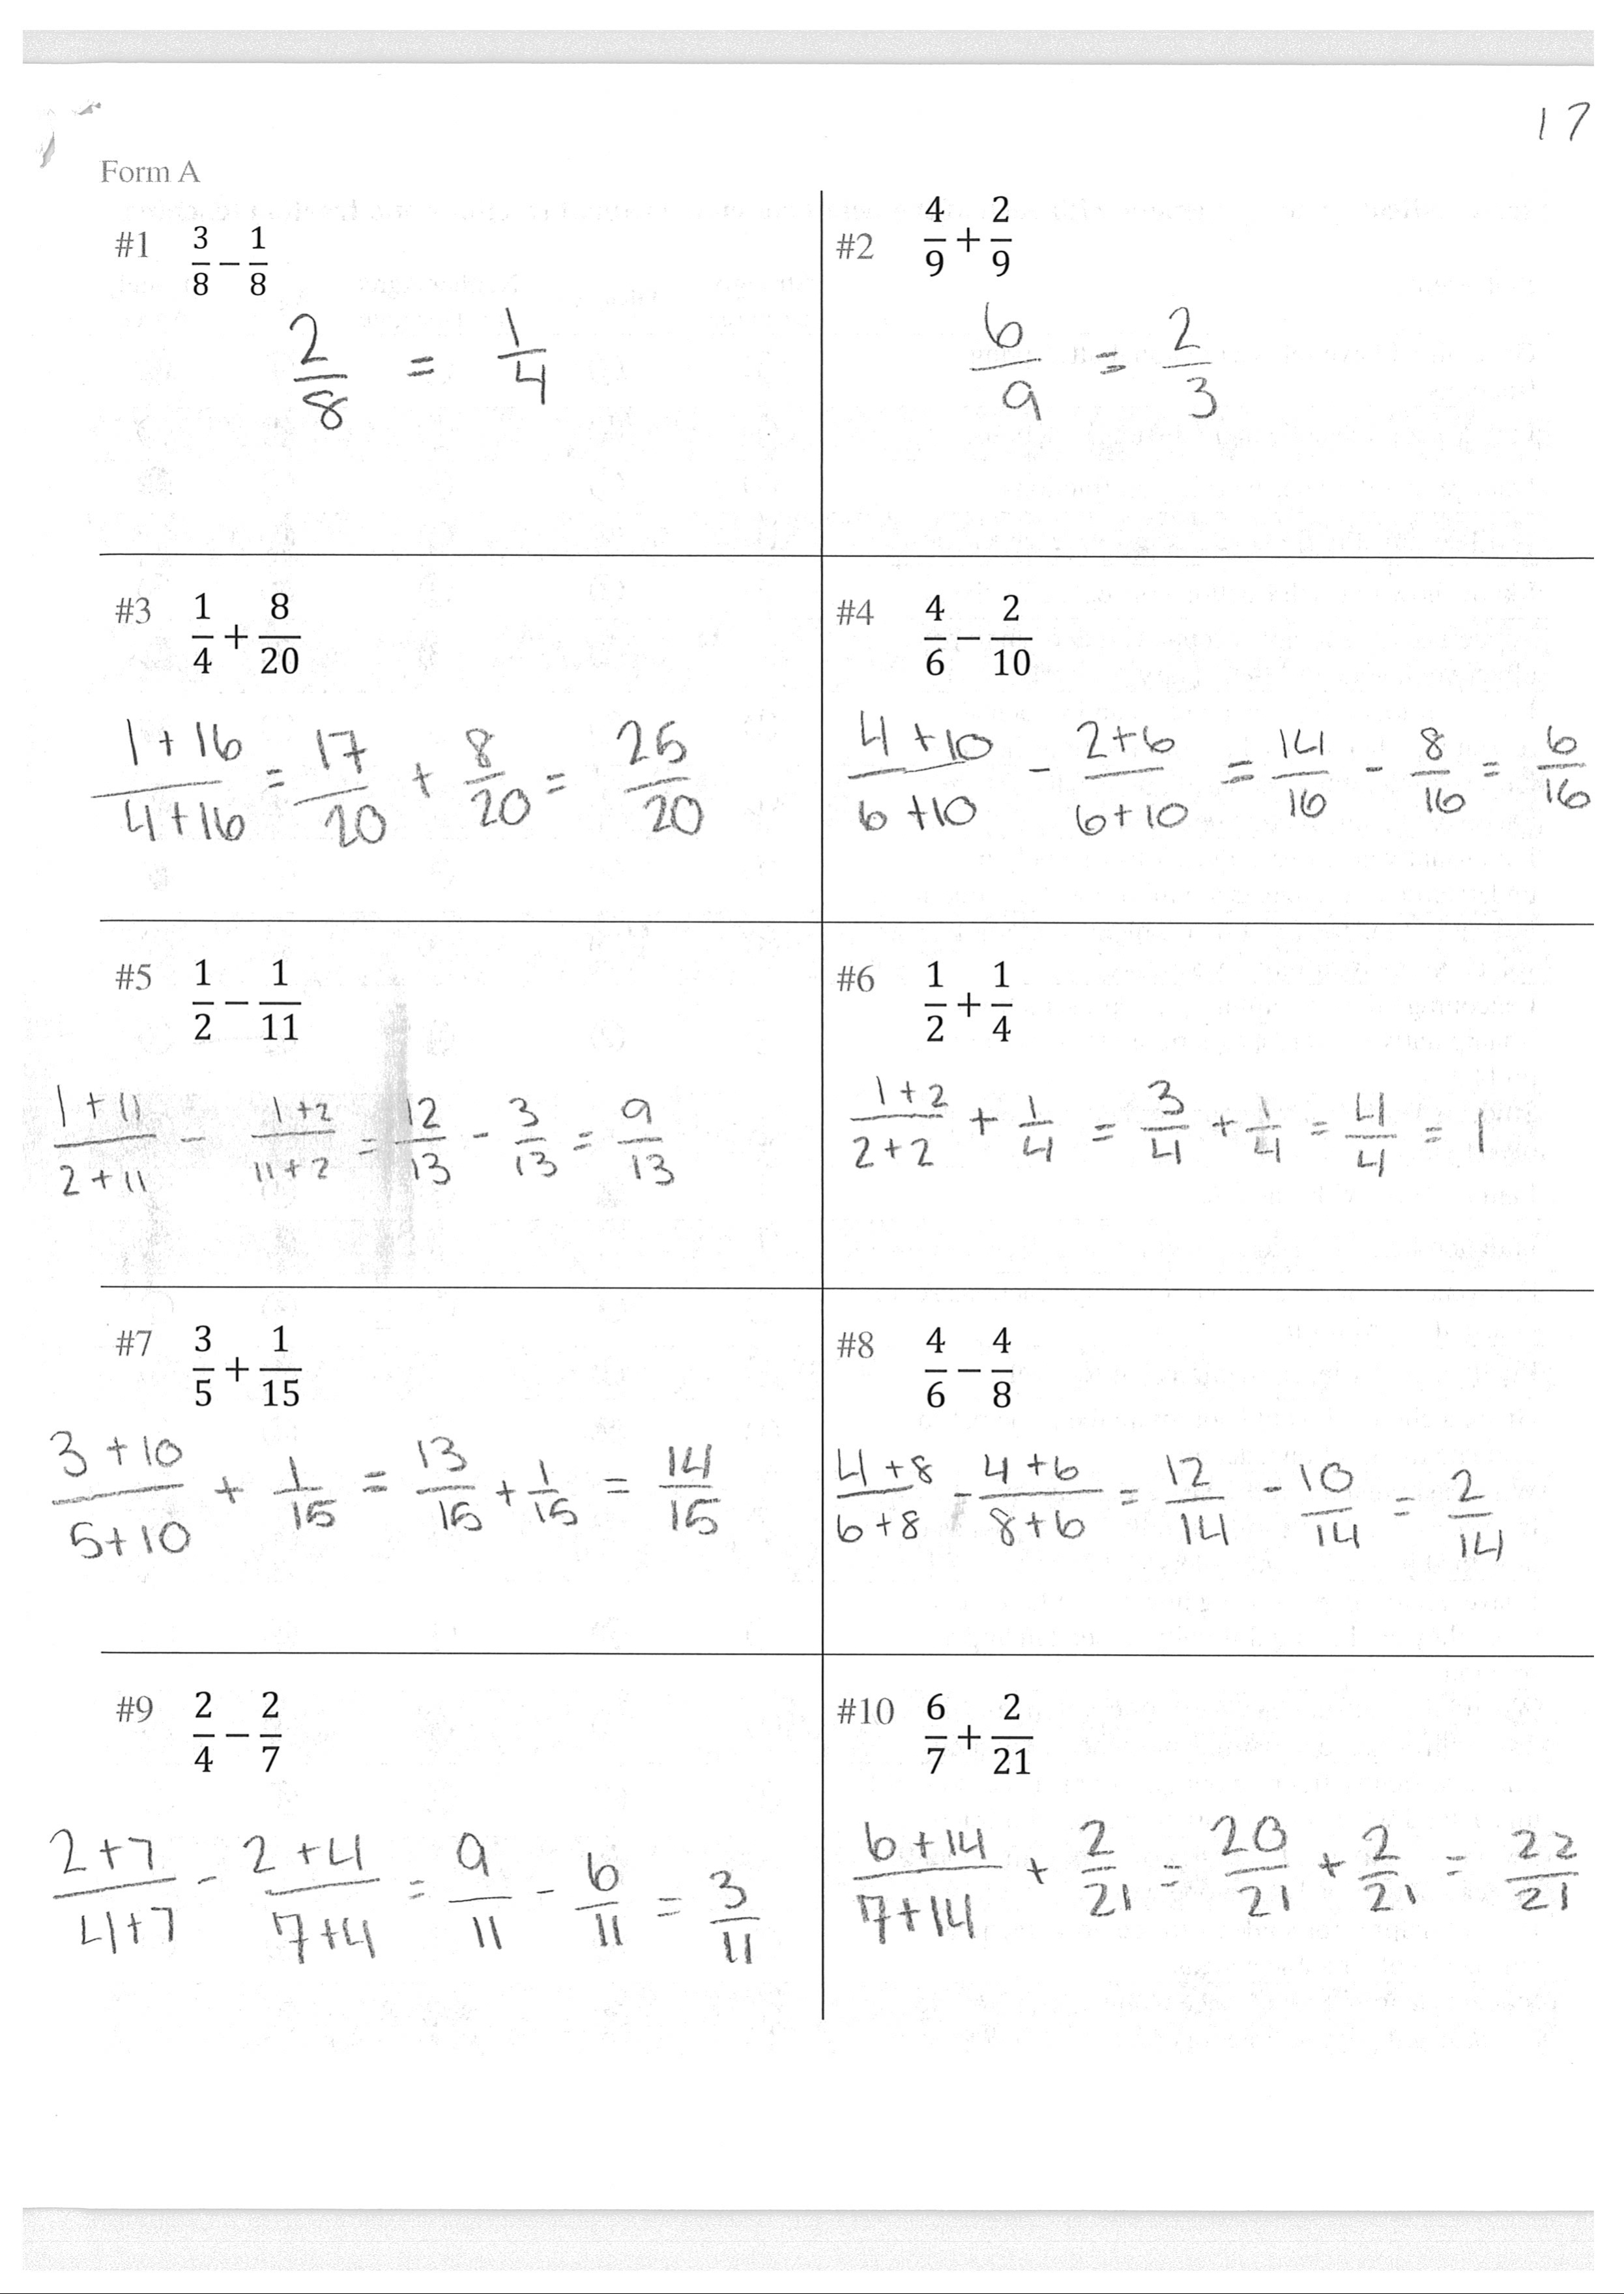 17
Form A
#1 3/8 − 1/8
2/8 = 1/4
#2 4/9 + 2/9
6/9 = 2/3
#3 1/4 + 8/20
(1+16)/(4+16) = 17/20 + 8/20 = 25/20
#4 4/6 − 2/10
(4+10)/(6+10) - (2+6)/(6+10) = 14/16 - 8/16 = 6/16
#5 1/2 − 1/11
(1+11)/(2+11) - (1+2)/(11+2) = 12/13 - 3/13 = 9/13
#6 1/2 + 1/4
(1+2)/(2+2) + 1/4 = 3/4 + 1/4 = 4/4 = 1
#7 3/5 + 1/15
(3+10)/(5+10) + 1/15 = 13/15 + 1/15 = 14/15
#8 4/6 − 4/8
(4+8)/(6+8) - (4+6)/(8+6) = 12/14 - 10/14 = 2/14
#9 2/4 − 2/7
(2+7)/(4+7) - (2+4)/(7+4) = 9/11 - 6/11 = 3/11
#10 6/7 + 2/21
(6+14)/(7+14) + 2/21 = 20/21 + 2/21 = 22/21